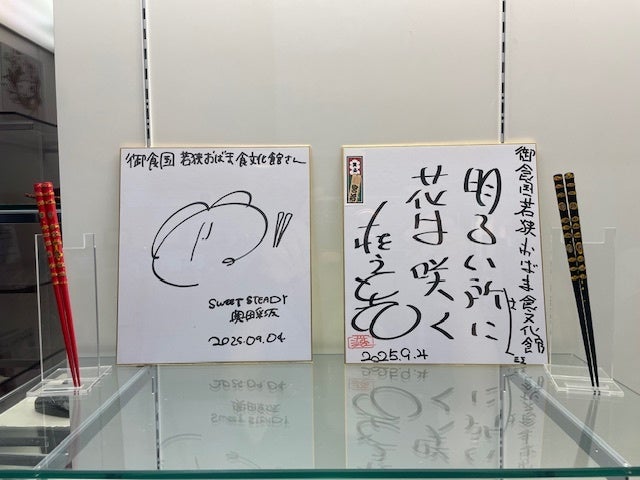 御食国 若狭おばま食文化館さん
SWEET STEADY
奥田彩友
2025.09.04
御食国若狭おばま食文化館
さん江
明るい所に
花は咲く
2025.9.4